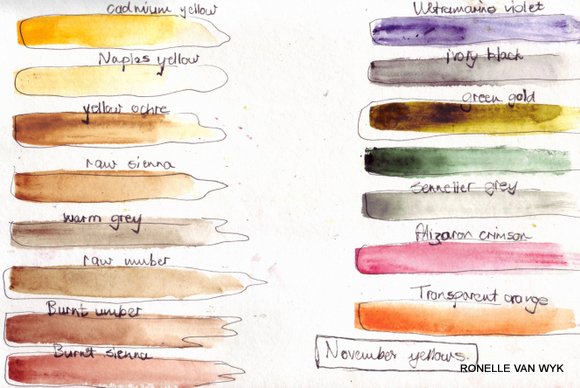 cadmium yellow
Naples yellow
yellow ochre
raw sienna
warm grey
raw umber
Burnt umber
Burnt sienna
Ultramarine violet
ivory black
green gold
Sennelier grey
Alizaron crimson
Transparent orange
November yellows.
RONELLE VAN WYK